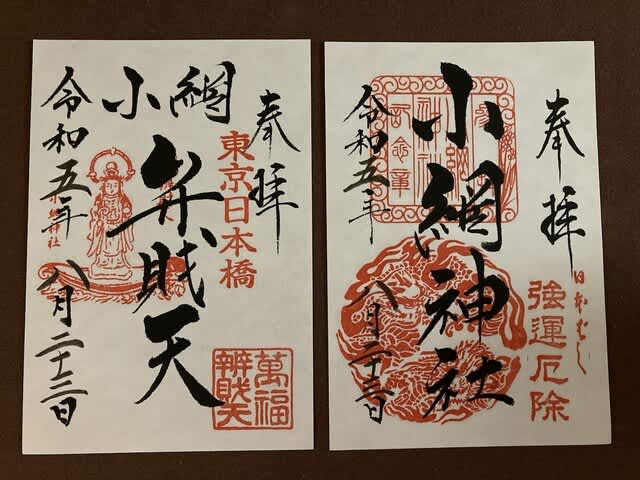 奉拝
東京日本橋
小網
弁財天
令和五年
八月二十三日
萬福
辨財天
奉拝
日本ばし
強運厄除
小網神社
令和五年
八月二十三日